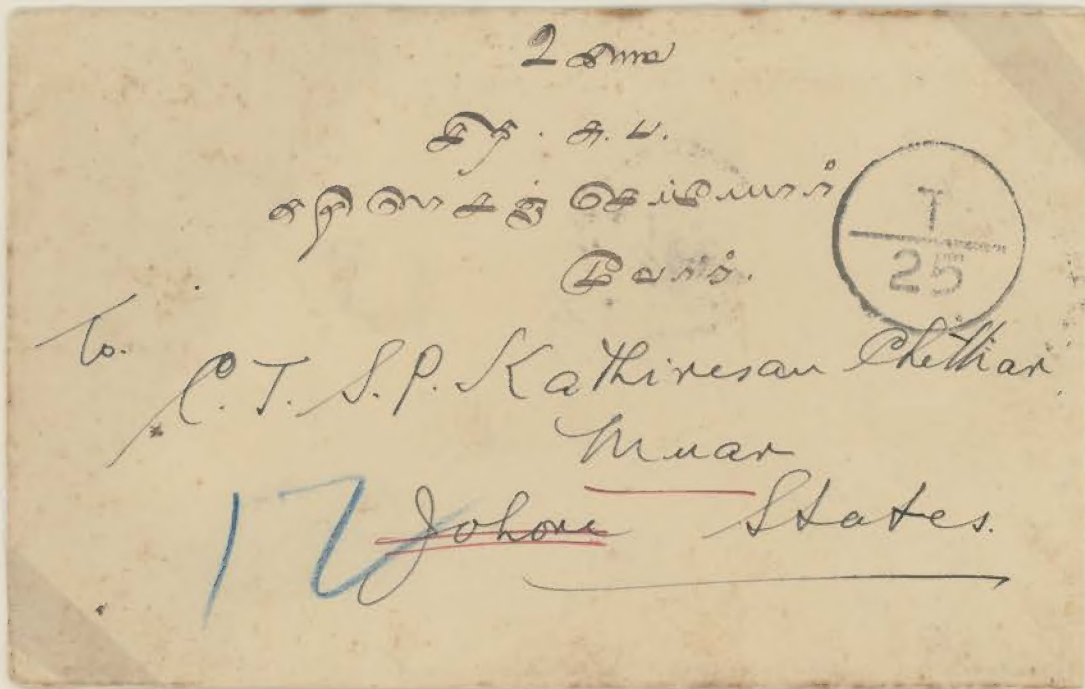 சித. சு. ப.
செட்டியார்
மூவார்.
T
25
To.
C. T. S. P. Kathiresan Chettiar
Muar
Johore States.
12